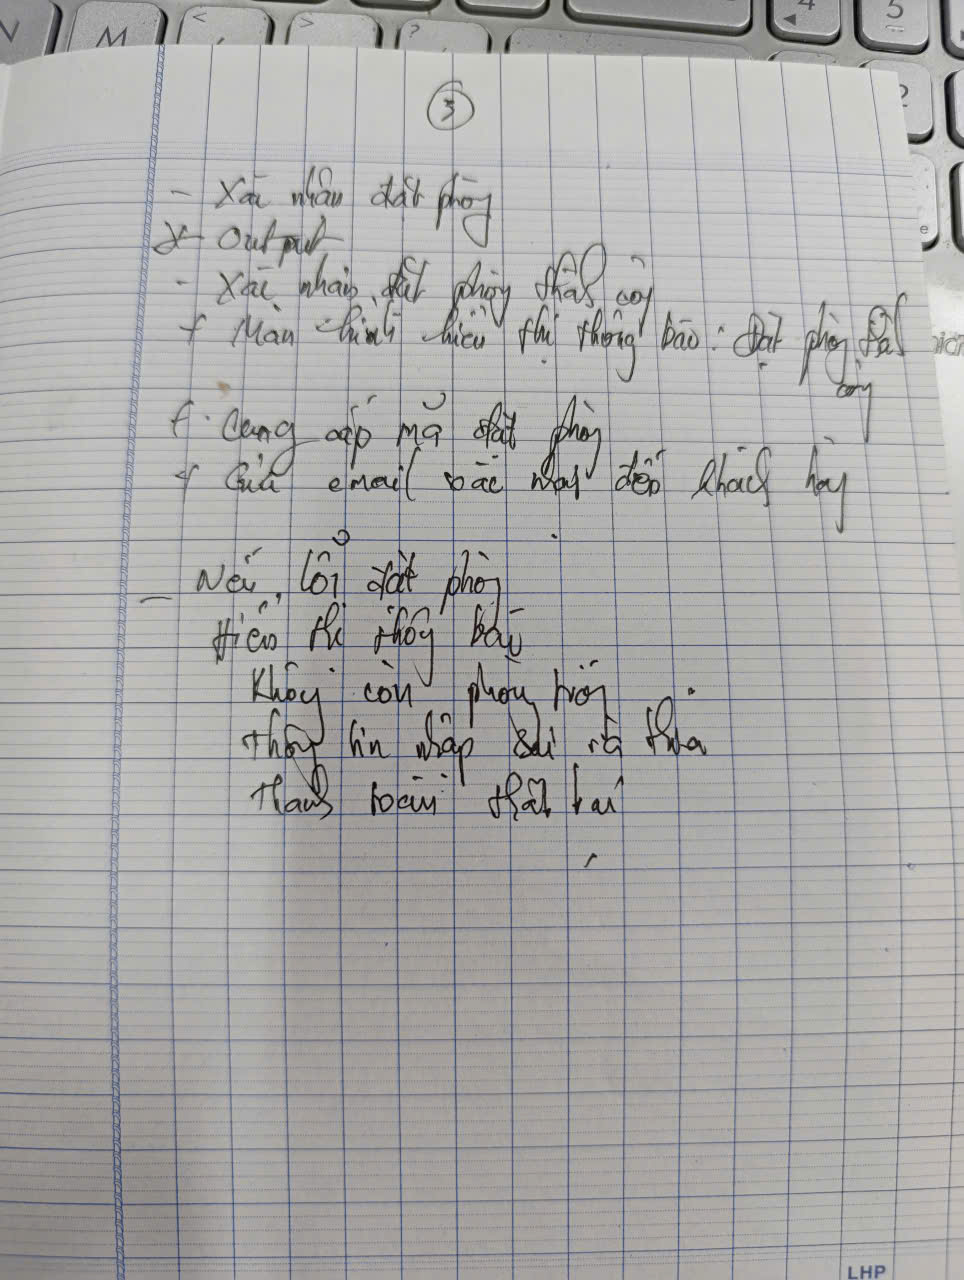 N M < , > . ? 4 5
2
3
- Xác nhận đặt phòng
* Output
- Xác nhận đặt phòng thành công
+ Màn hình hiển thị thông báo: Đặt phòng thành
công
+ Cung cấp mã đặt phòng
+ Gửi email xác nhận đến khách hàng
- Nếu lỗi đặt phòng
Hiển thị thông báo
Không còn phòng trống
Thông tin nhập sai
Thanh toán thất bại
LHP